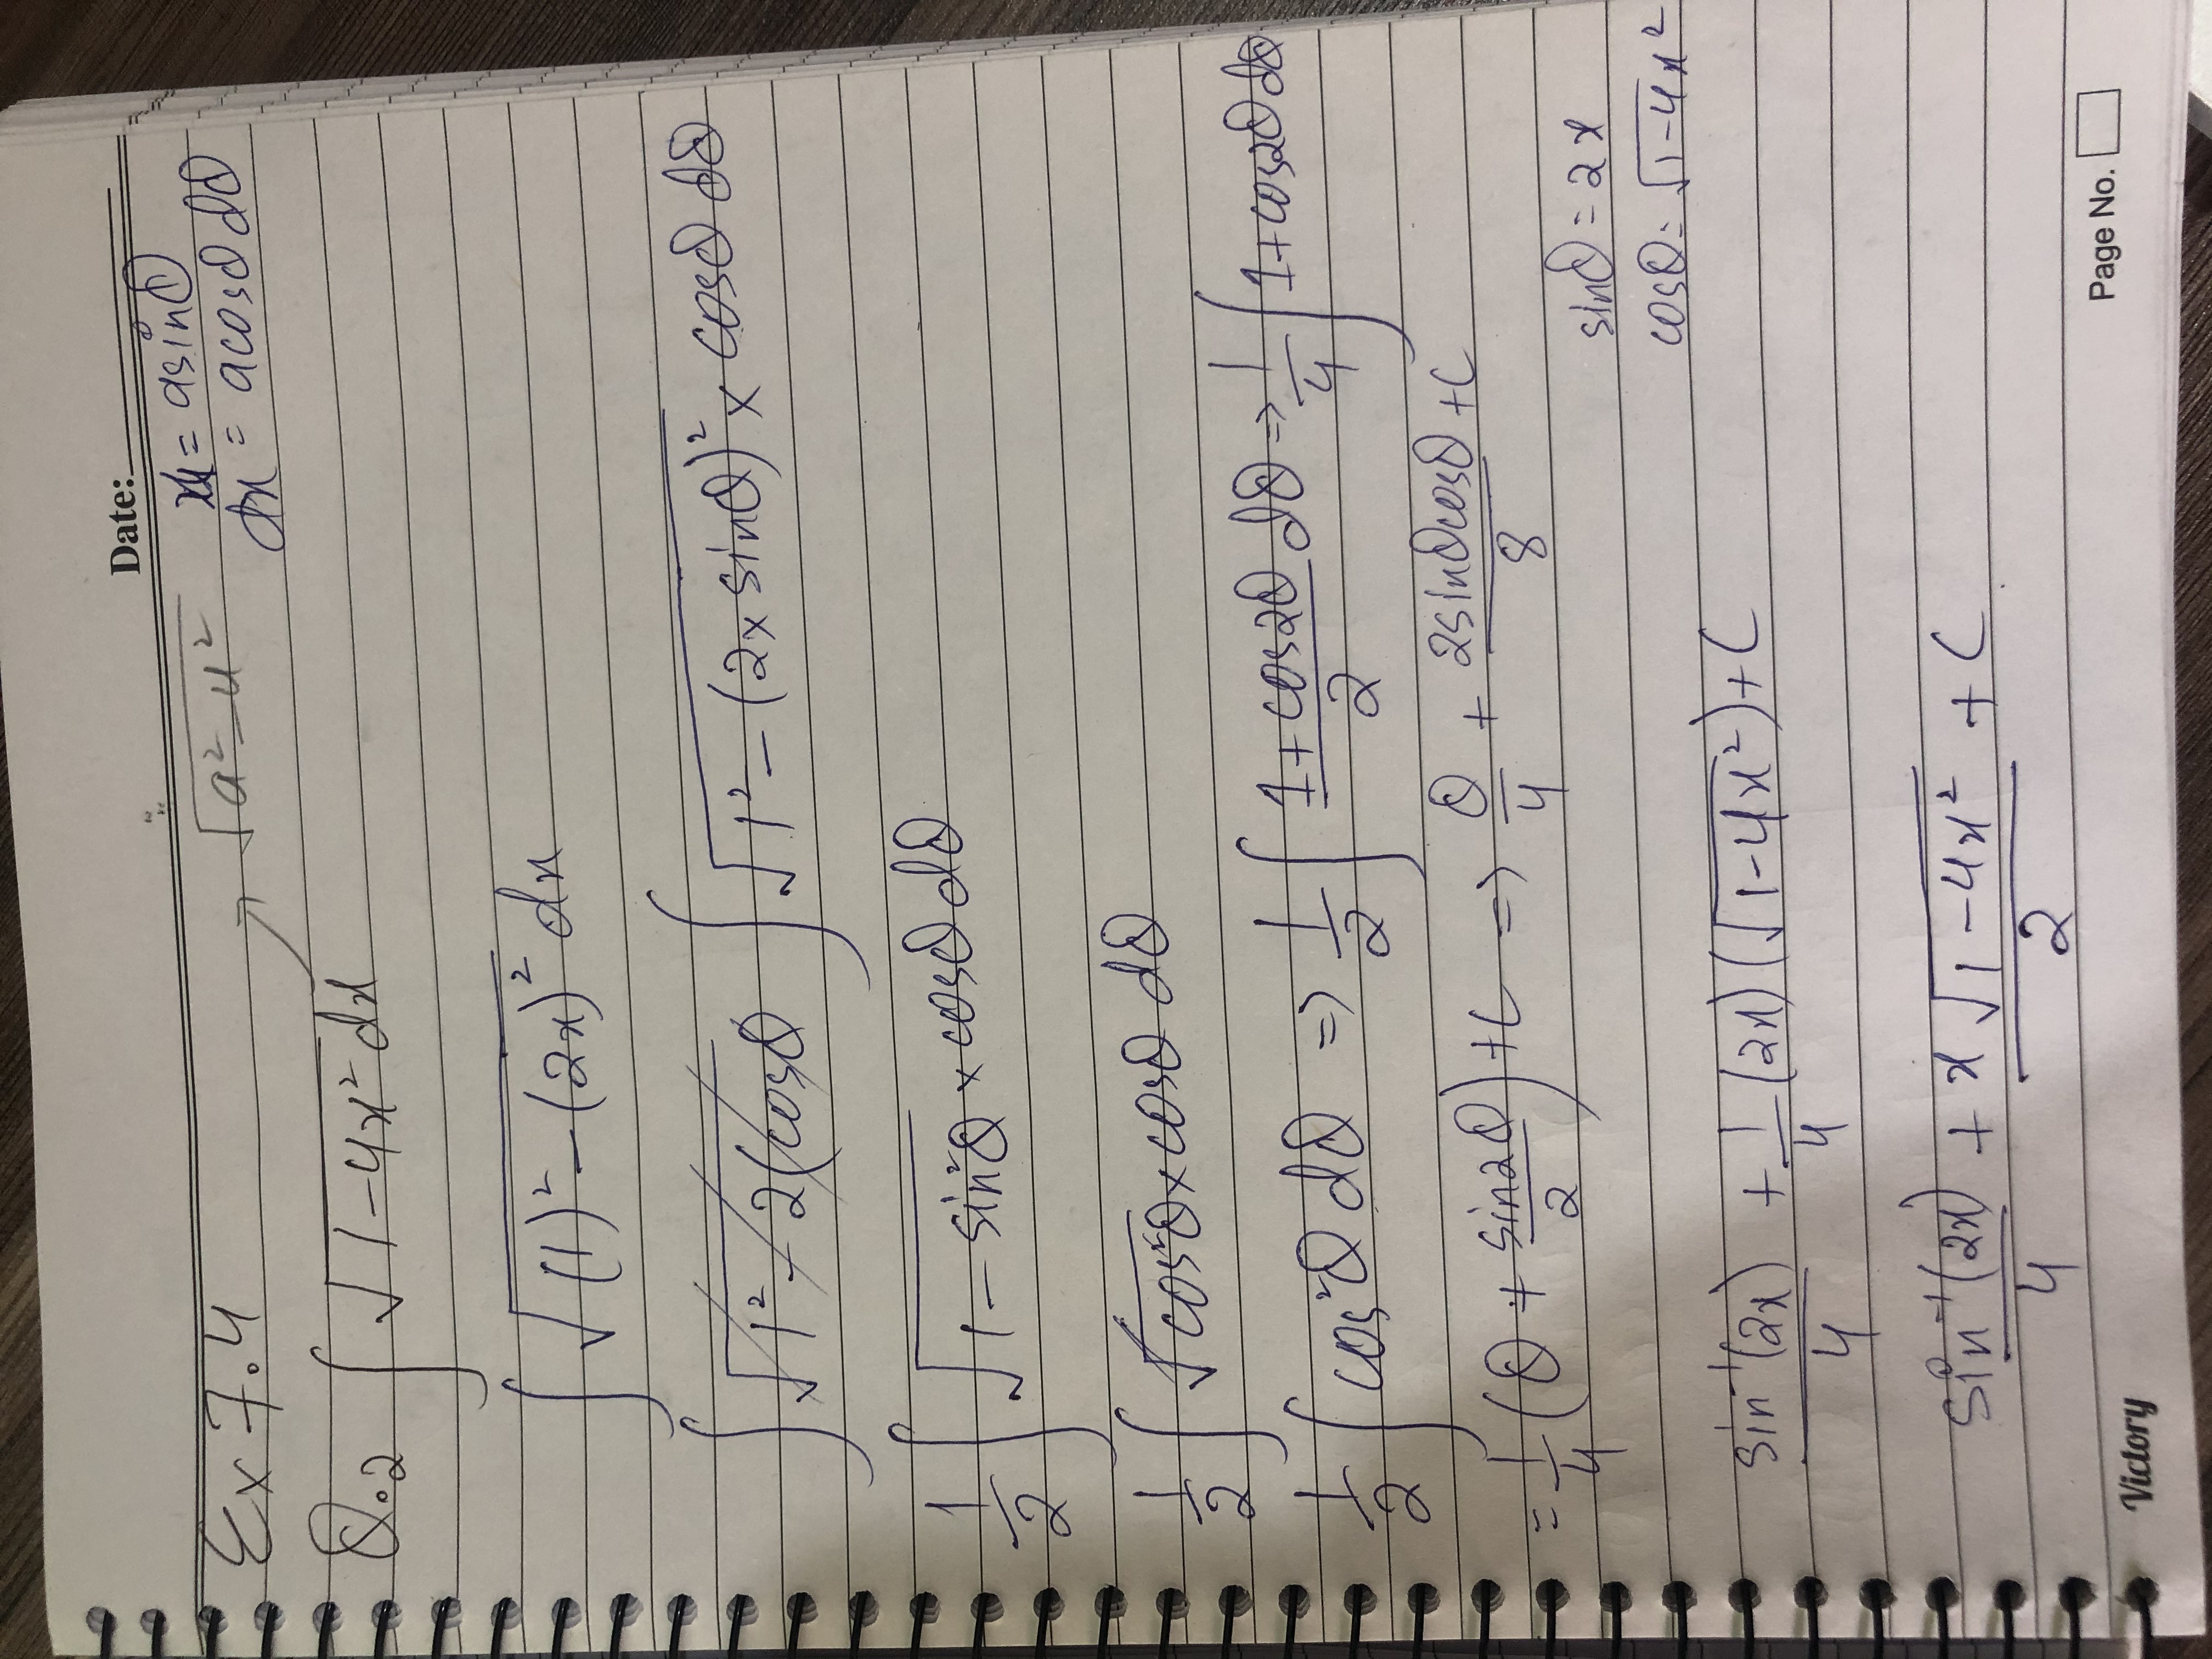 Date:
x = a sinθ
Ex 7.4 √(a² - u²) dx = a cosθ dθ
Q.2 ∫ √(1-4x²) dx
∫ √((1)² - (2x)²) dx
∫ √(1² - 2(cosθ ∫ √(1² - (2 x sinθ)²) x cosθ dθ
1/2 ∫ √(1 - sin²θ) x cosθ dθ
1/2 ∫ √(cos²θ) x cosθ dθ
1/2 ∫ cos²θ dθ => 1/2 ∫ (1+cos2θ)/2 dθ => 1/4 ∫ 1+cos2θ dθ
= 1/4 (θ + sin2θ/2) + C => θ/4 + 2sinθcosθ/8 + C
sinθ = 2x
cosθ = √(1-4x²)
sin⁻¹(2x)/4 + 1/4 (2x) (√(1-4x²)) + C
sin⁻¹(2x)/4 + x√(1-4x²)/2 + C
Page No.
Victory